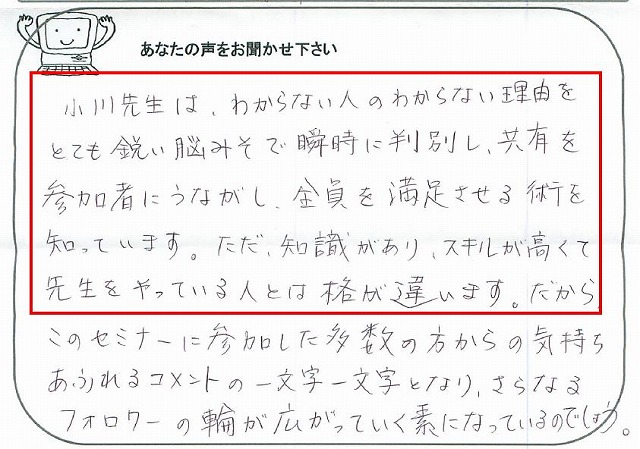 あなたの声をお聞かせ下さい
小川先生は、わからない人のわからない理由を
とても鋭い脳みそで瞬時に判別し、共有を
参加者にうながし、全員を満足させる術を
知っています。ただ、知識があり、スキルが高くて
先生をやっている人とは格が違います。だから、
このセミナーに参加した多数の方からの気持ち
あふれるコメントの一文字一文字となり、さらなる
フォロワーの輪が広がっていく素になっているのでしょう。